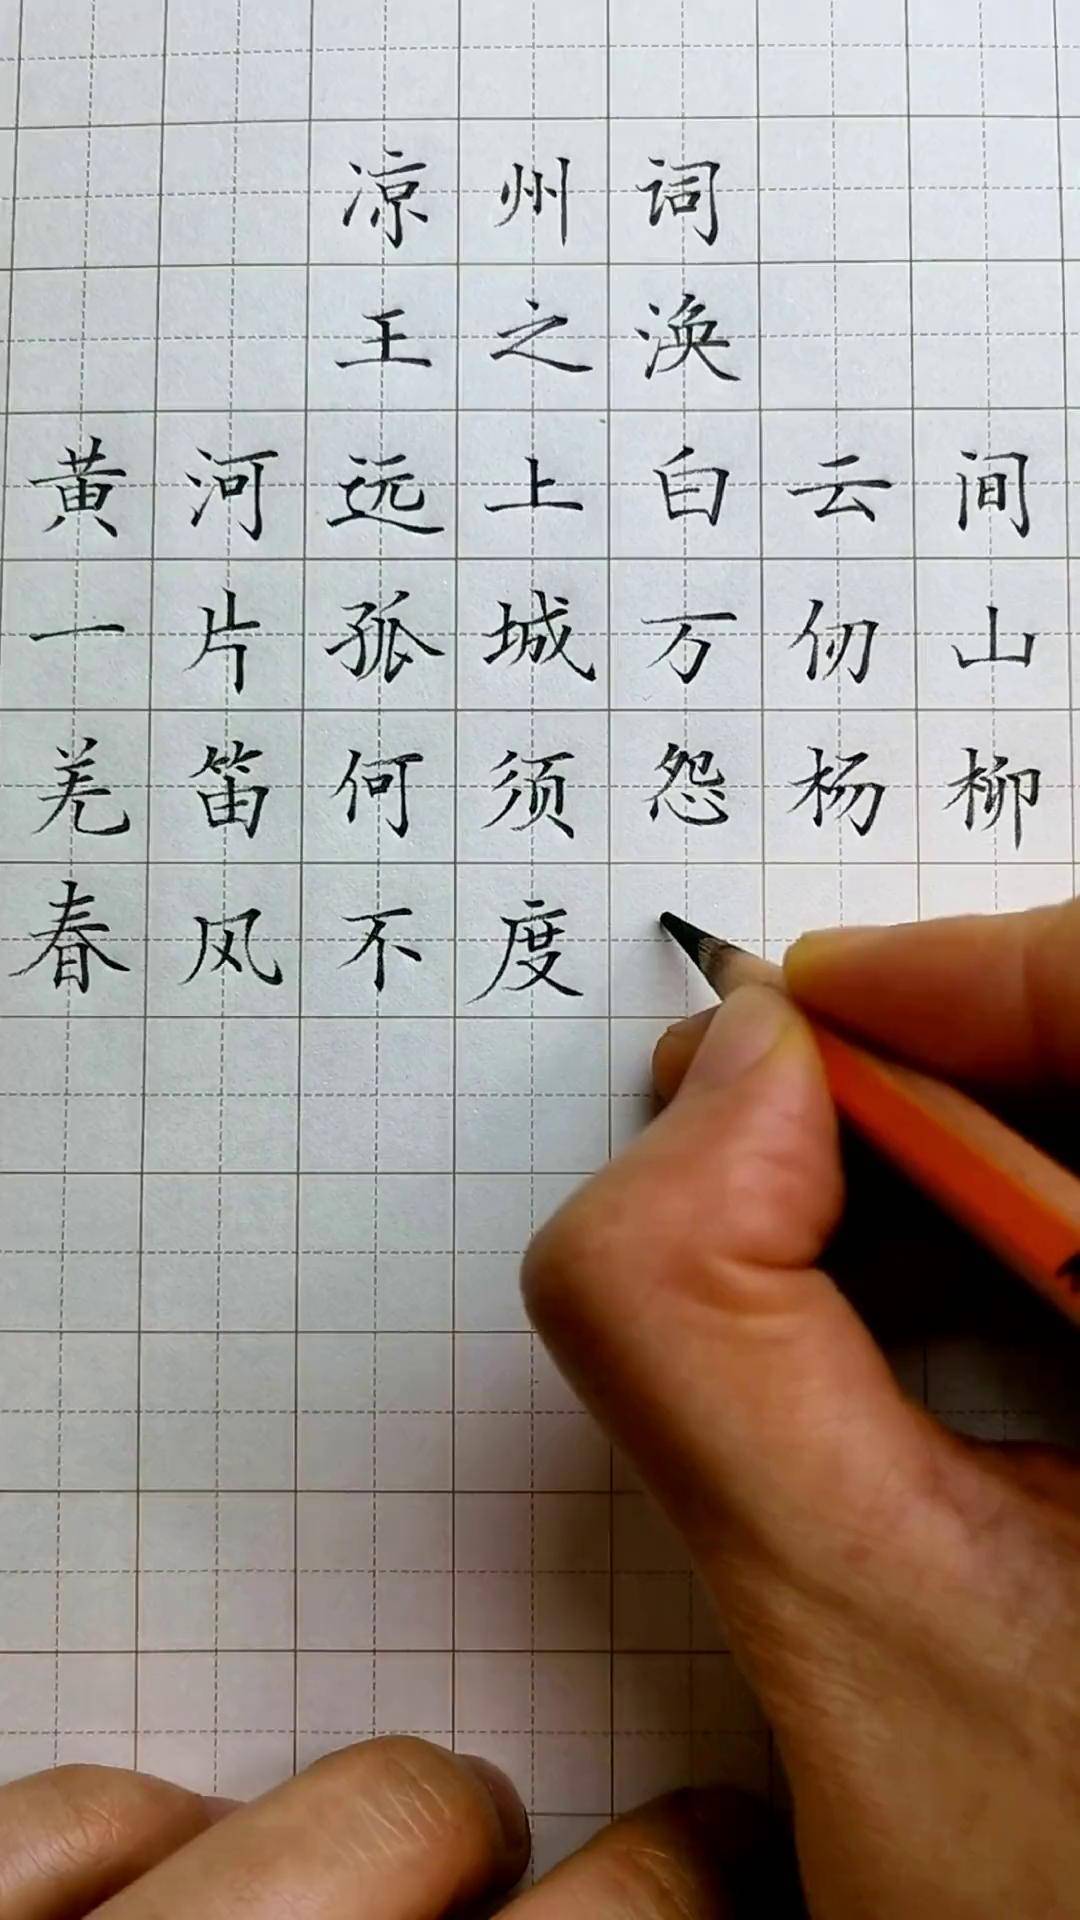 凉州词
王之涣
黄河远上白云间
一片孤城万仞山
羌笛何须怨杨柳
春风不度